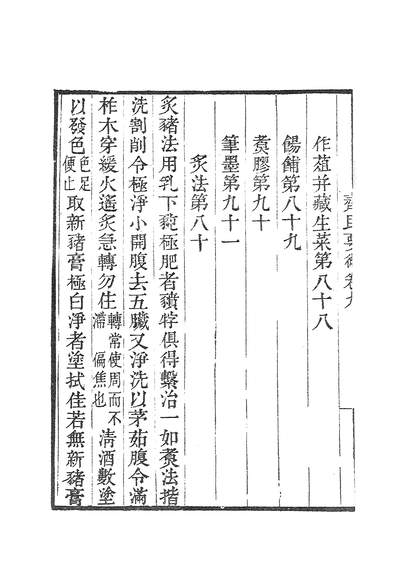 齊民要術卷九
作葅并藏生菜第八十八
餳餔第八十九
煑膠第九十
筆墨第九十一
炙法第八十
炙豬法用乳下㹠極肥者豶牸俱得繫治一如煑法揩
洗割削令極淨小開腹去五臟又淨洗以茅茹腹令滿
柞木穿緩火遙炙急轉勿住轉常使周而不滯偏焦也淸酒數塗
以發色色足便止取新豬膏極白淨者塗拭住若無新豬膏